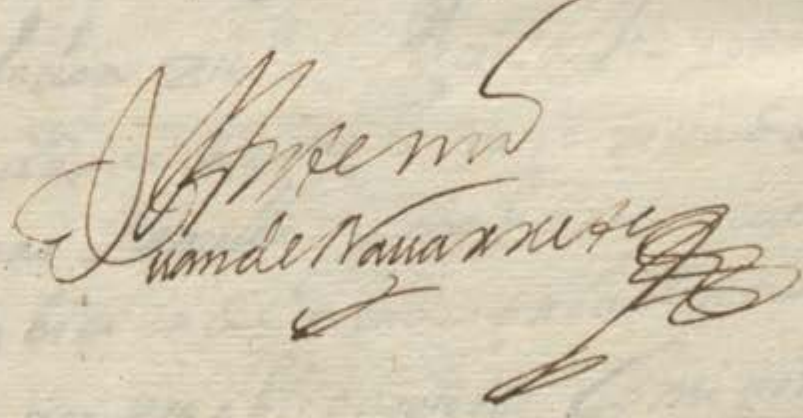 Ante mi
Juan de Nauarrete